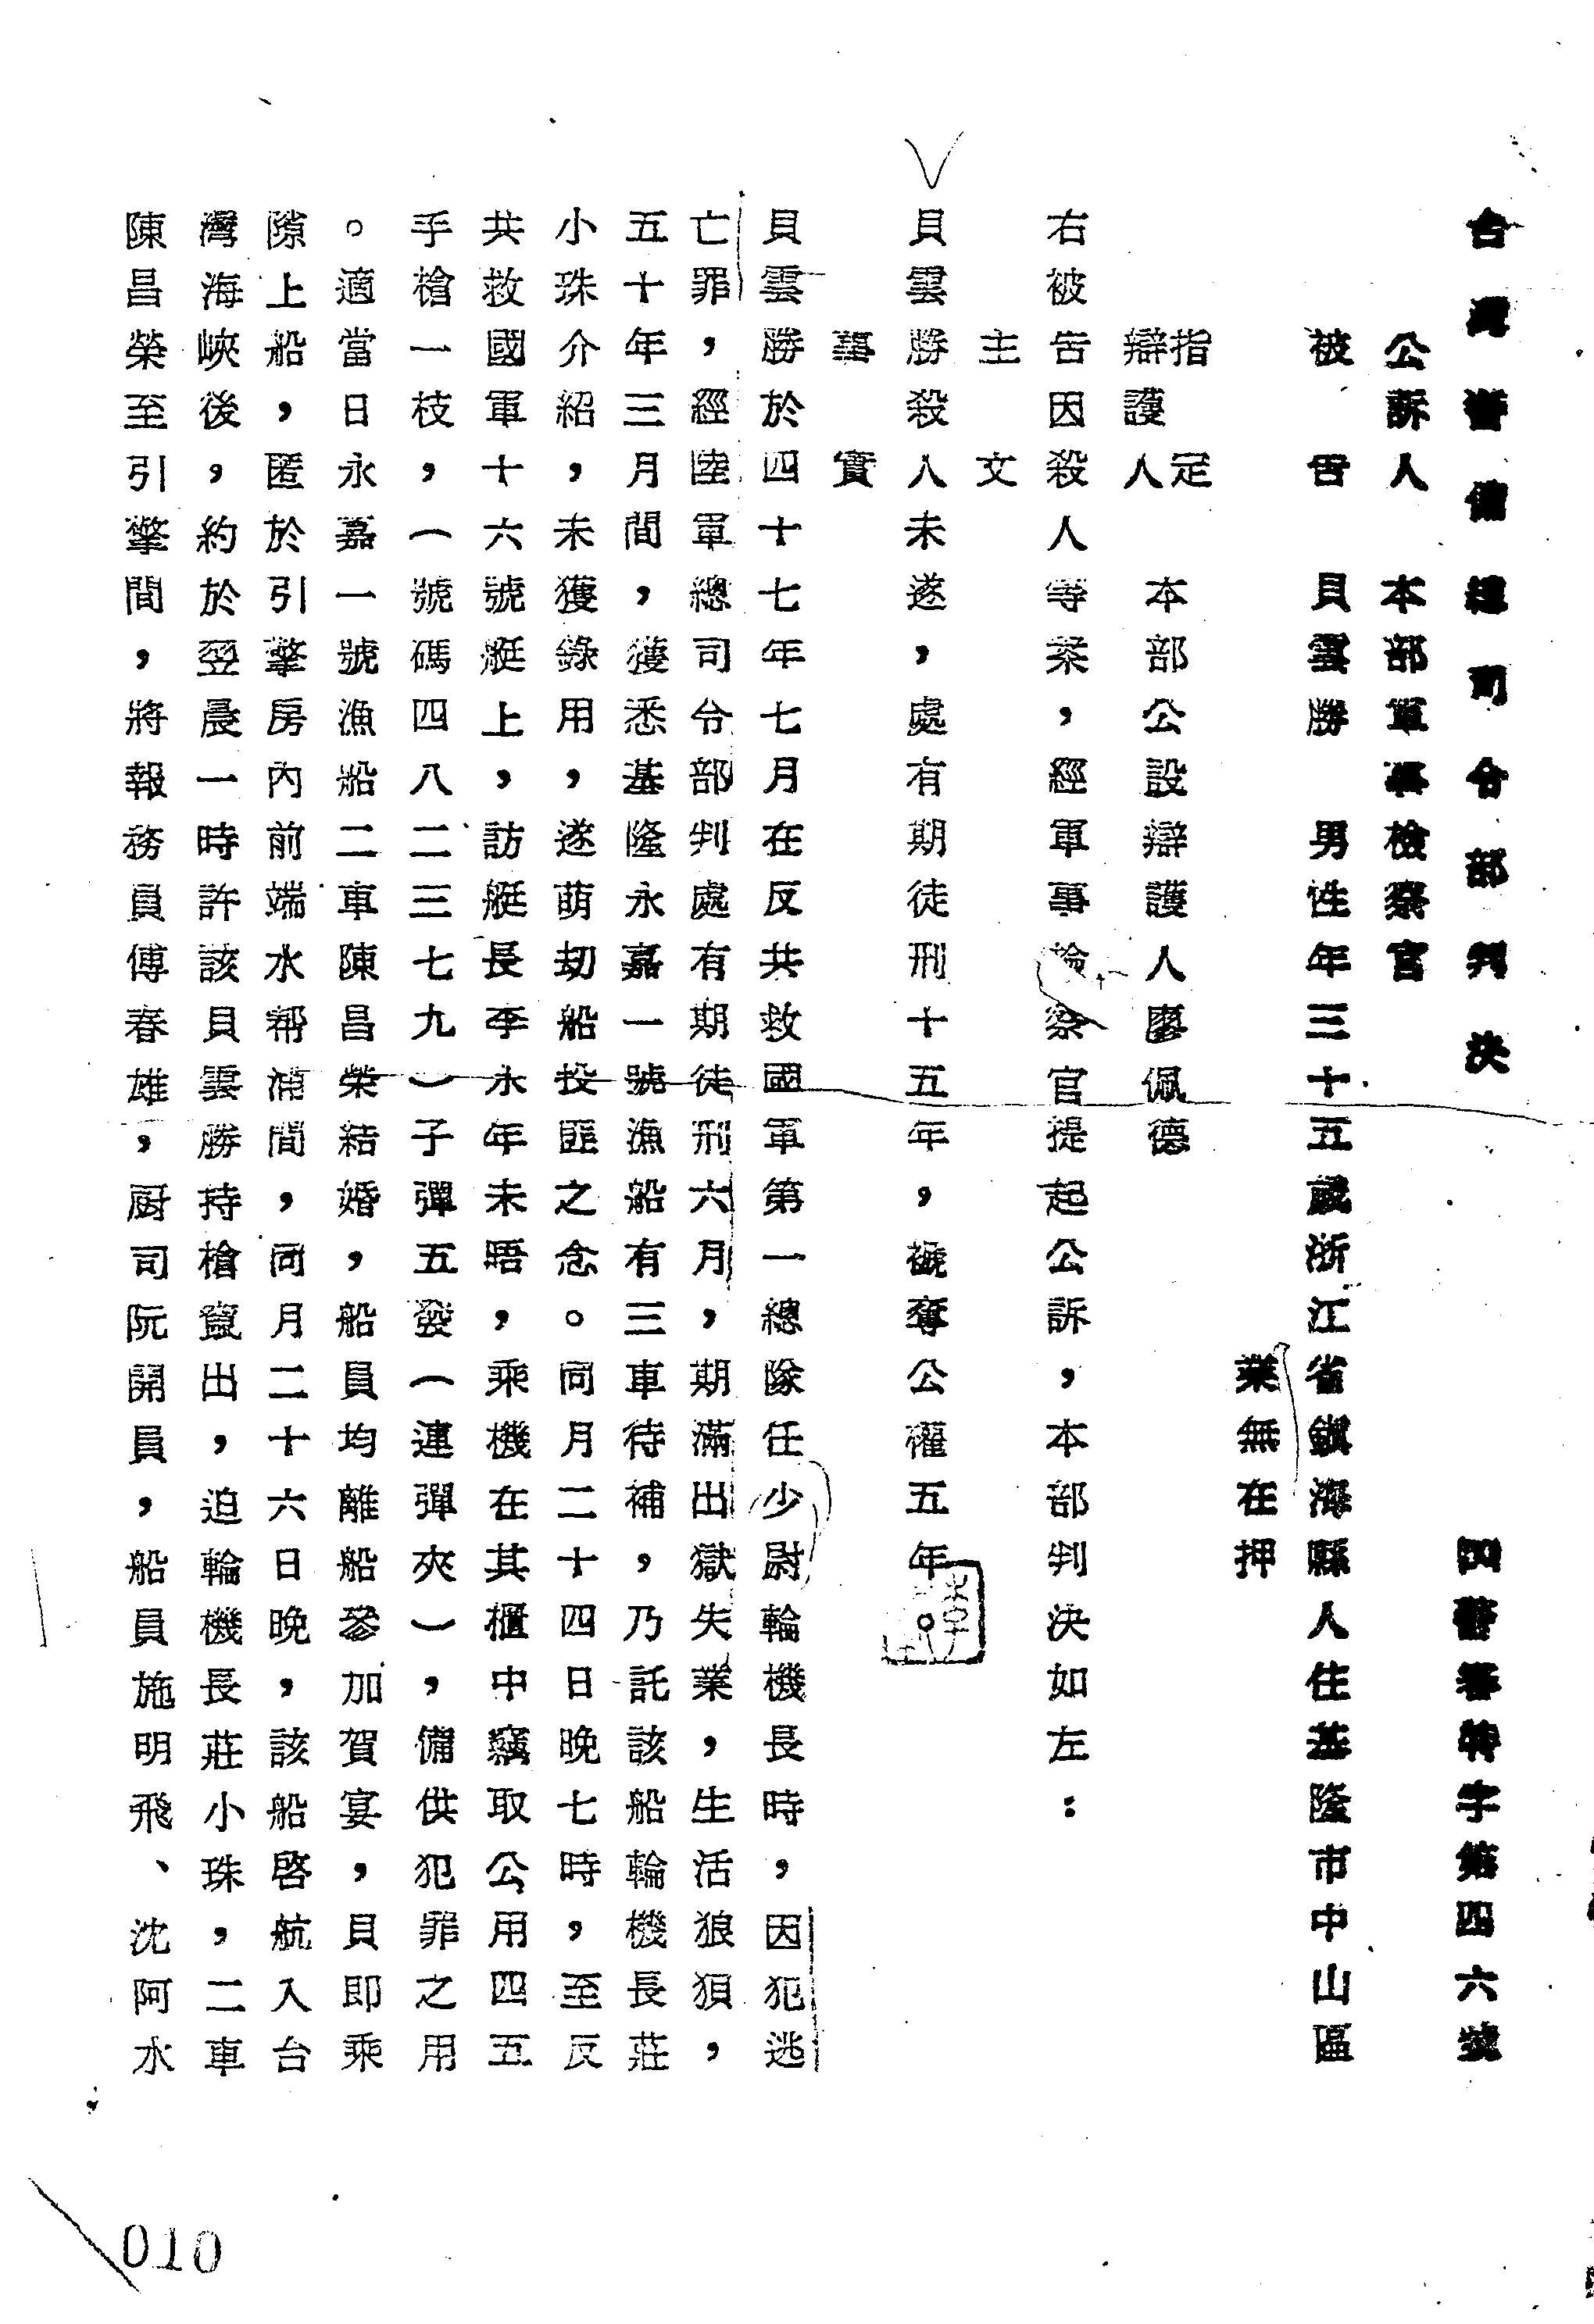 台灣警備總司令部判決
四警審特字第四六號
公訴人　本部軍事檢察官
被告　貝雲勝　男性年三十五歲浙江省鎮海縣人住基隆市中山區
業無在押
指定
辯護人　本部公設辯護人廖佩德
右被告因殺人等案，經軍事檢察官提起公訴，本部判決如左：
主文
貝雲勝殺人未遂，處有期徒刑十五年，褫奪公權五年。
事實
貝雲勝於四十七年七月在反共救國軍第一總隊任少尉輪機長時，因犯逃
亡罪，經陸軍總司令部判處有期徒刑六月，期滿出獄失業，生活狼狽，
五十年三月間，獲悉基隆永嘉一號漁船有三車待補，乃託該船輪機長莊
小珠介紹，未獲錄用，遂萌刧船投匪之念。同月二十四日晚七時，至反
共救國軍十六號艇上，訪艇長李永年未晤，乘機在其櫃中竊取公用四五
手槍一枝，（號碼四八二三七九）子彈五發（連彈夾），備供犯罪之用
。適當日永嘉一號漁船二車陳昌榮結婚，船員均離船參加賀宴，貝即乘
隙上船，匿於引擎房內前端水帮浦間，同月二十六日晚，該船啓航入台
灣海峽後，約於翌晨一時許該貝雲勝持槍竄出，迫輪機長莊小珠，二車
陳昌榮至引擎間，將報務員傅春雄，厨司阮開員，船員施明飛、沈阿水
010